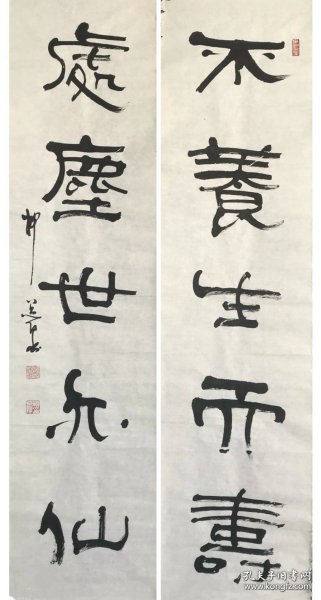 不養生而壽
處塵世亦仙
孔夫子旧书网